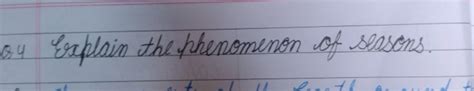 Q4 Explain the phenomenon of seasons.